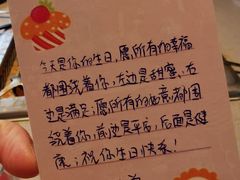 今天是你的生日，愿所有的幸福
都围绕着你，左边是甜蜜、右
边是满足；愿所有的如意都围
绕着你，前边是平安，后面是健
康；祝你生日快乐！